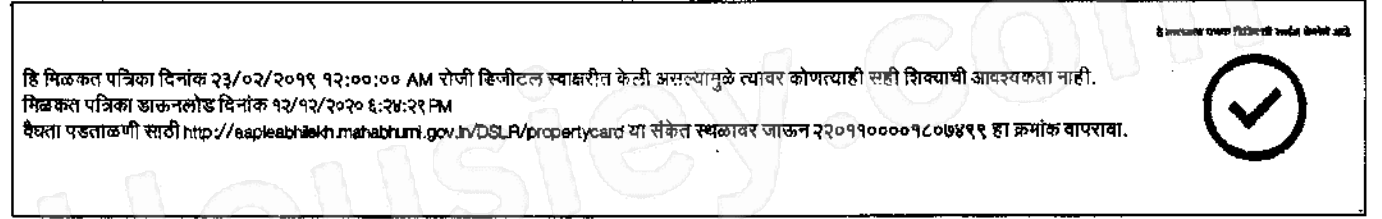 हि मिळकत पत्रिका दिनांक २३/०२/२०१९ १२:००:०० AM रोजी डिजीटल स्वाक्षरीत केली असल्यामुळे त्यावर कोणत्याही सही शिक्याची आवश्यकता नाही.
मिळकत पत्रिका डाऊनलोड दिनांक १२/१२/२०२० ६:२४:२१ PM
वैधता पडताळणी साठी http://aapleabhilekh.mahabhumi.gov.in/DSLR/propertycard या संकेत स्थळावर जाऊन २२०११००००१८०७४९९ हा क्रमांक वापरावा.
Housiey.com